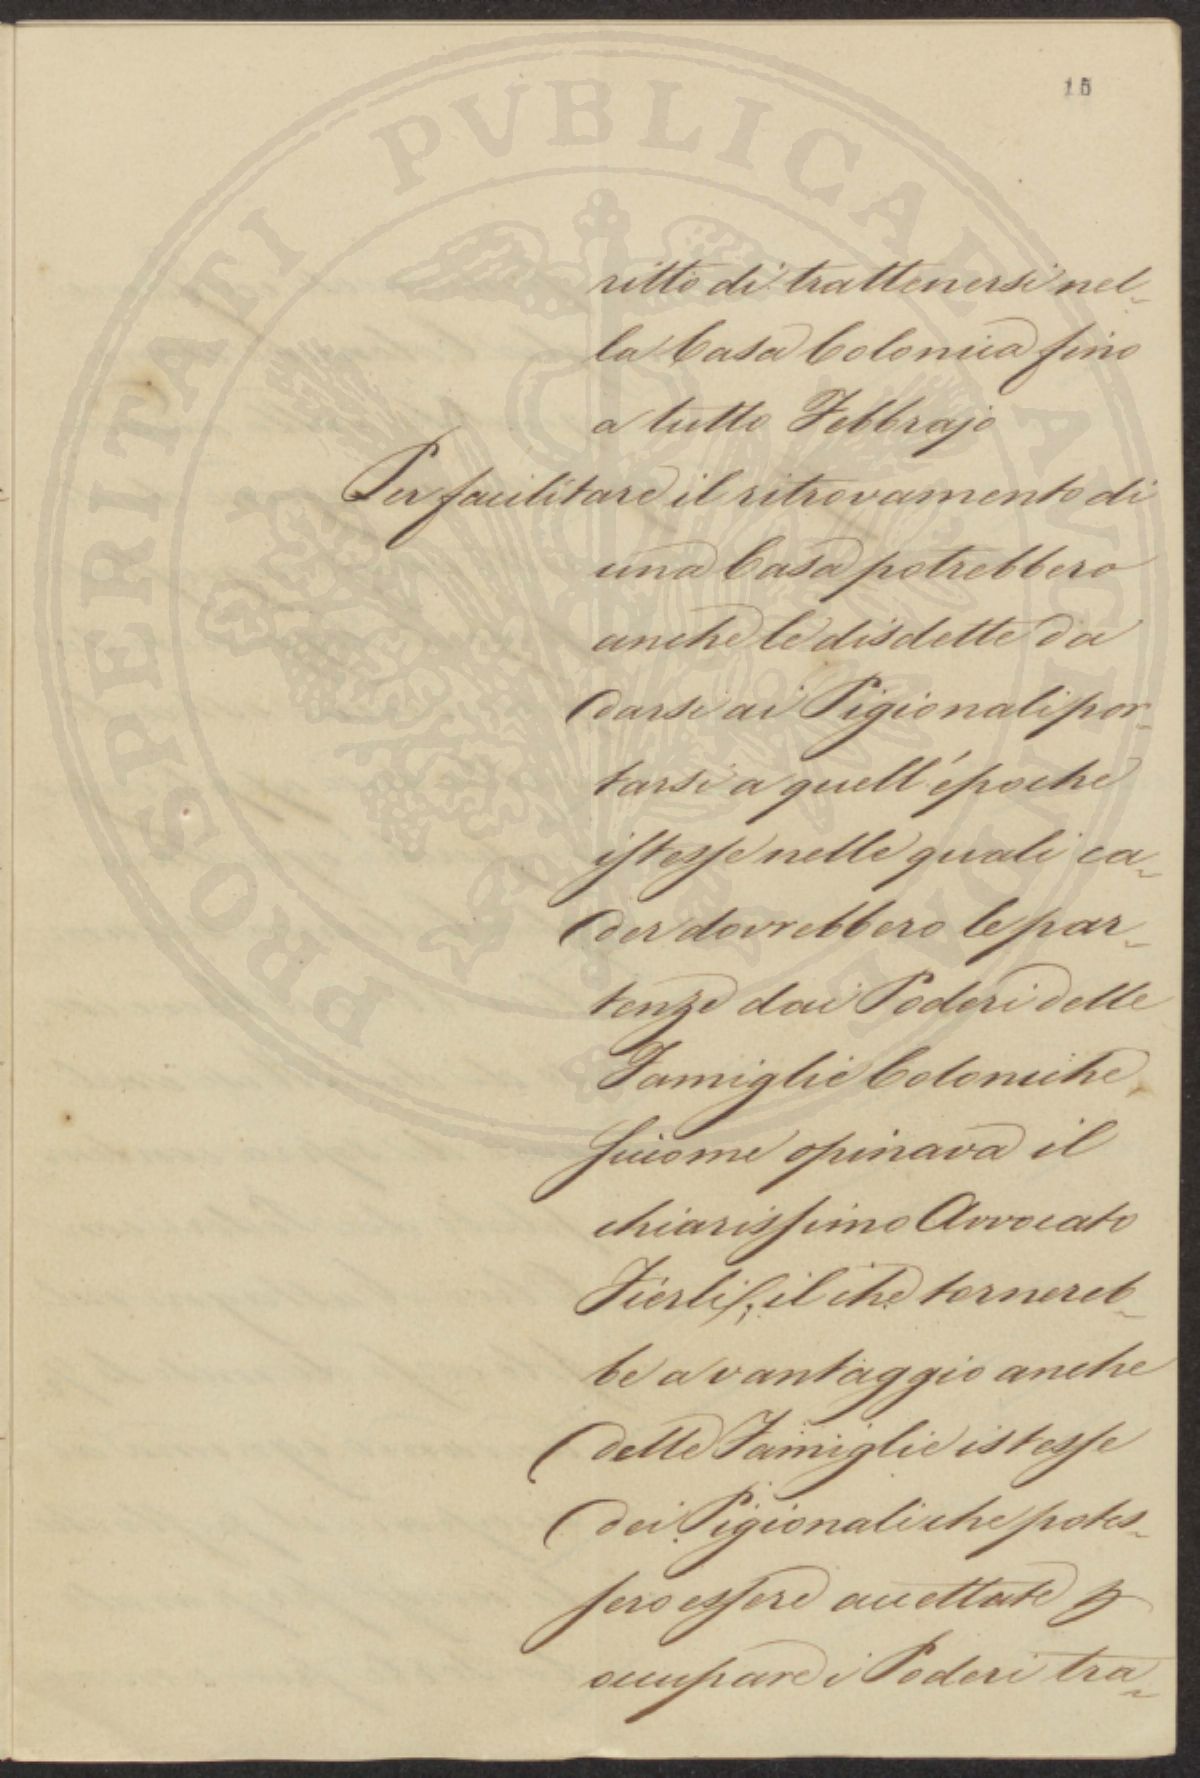 15
PROSPERITATI PVBLICAE AVGENDAE
ritto di trattenersi nel-
la Casa Colonica fino
a tutto Febbrajo
Per facilitare il ritrovamento di
una Casa potrebbero
anche le disdette da
darsi ai Pigionali por-
tarsi a quell'époche
istesse nelle quali ca-
der dovrebbero le par-
tenze dai Poderi delle
Famiglie Coloniche,
siccome opinava il
chiarissimo Avvocato
Fierli; il che tornereb-
be a vantaggio anche
delle Famiglie istesse
dei Pigionali che potes-
sero essere accettate
occupare i Poderi tra-